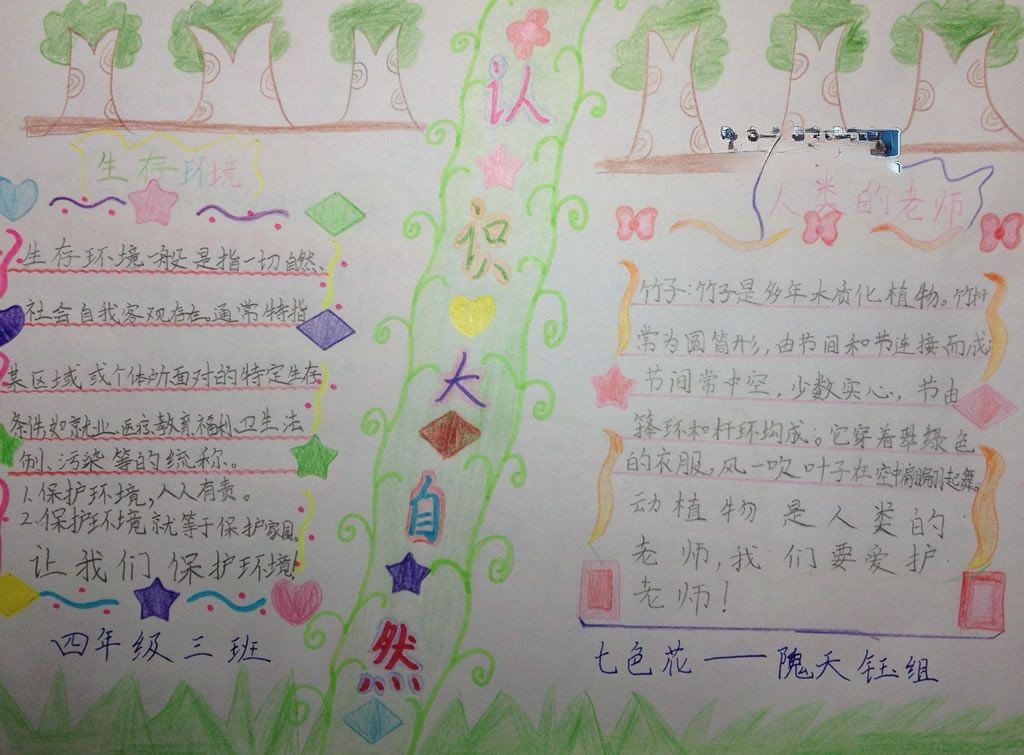 认识大自然
生存环境
生存环境一般是指一切自然、
社会自我客观存在。通常特指
某区域或个体所面对的特定生存
条件,如就业、医疗、教育、福利、卫生、法
制、污染等的统称。
1.保护环境,人人有责。
2.保护环境就等于保护家园。
让我们保护环境!
四年级三班
人类的老师
竹子:竹子是多年木质化植物。竹杆
常为圆筒形,由节间和节连接而成
节间常中空,少数实心,节由
箨环和杆环构成。它穿着翠绿色
的衣服,风一吹叶子在空中翩翩起舞。
动植物是人类的
老师,我们要爱护
老师!
七色花——隗天钰组